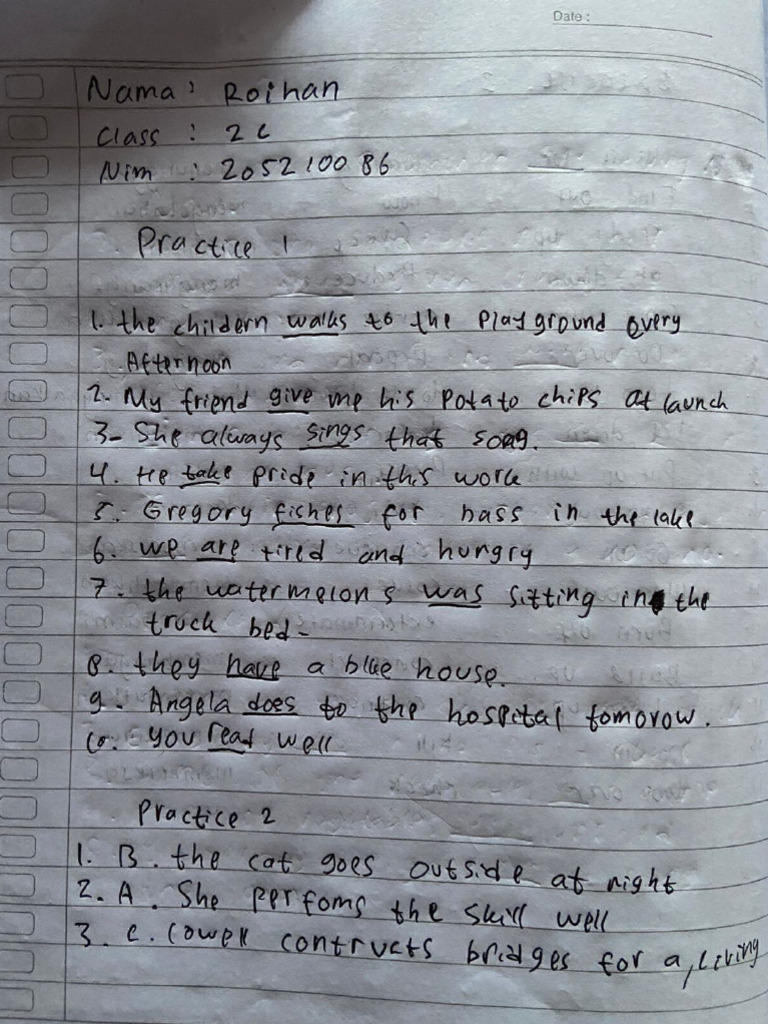 Date :
Nama : Roihan
Class : 2C
Nim : 205210086
Practice 1
1. the childern walks to the playground every
Afternoon
2. My friend give me his potato chips at launch
3- She always sings that song.
4. He take pride in this work
5. Gregory fiches for bass in the lake
6. we are tired and hungry
7. the watermelons was sitting in the
truck bed-
8. they have a blue house.
9. Angela does to the hospital tomorow.
10. you read well
Practice 2
1. B. the cat goes outside at night
2. A. She perfoms the skill well
3. C. Cowell contructs bridges for a living